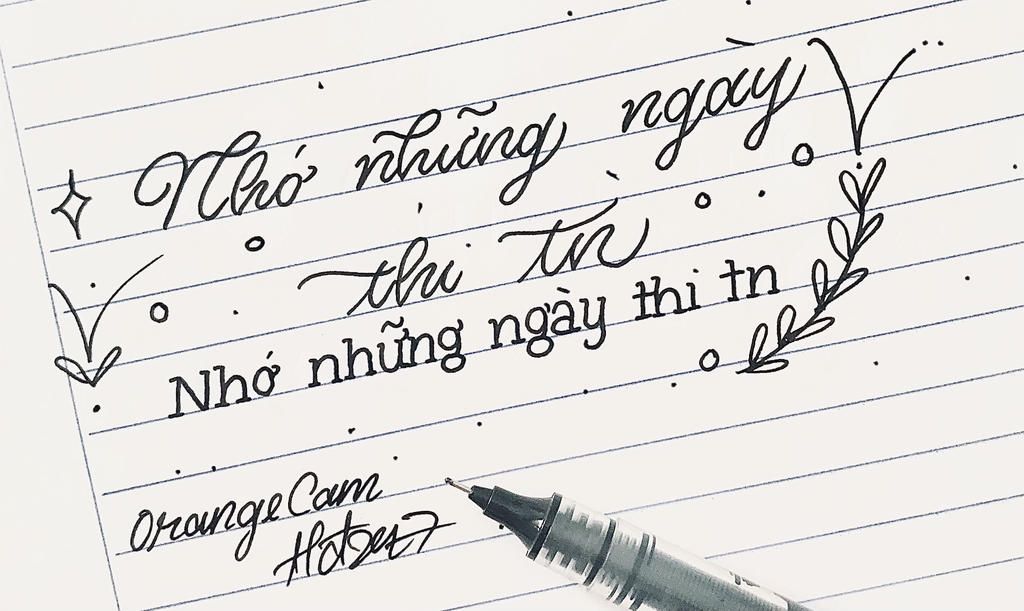 Nhớ những ngày
thi tn
Nhớ những ngày thi tn
OrangeCam